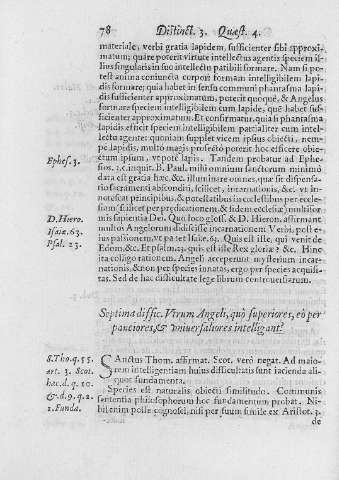 78 Distinct. 3. Quæst. 4.
materiale, verbi gratia lapidem, sufficienter sibi approxi-
matum; quare poterit virtute intellectus agentis speciem il-
lius singularis in suo intellectu patibili formare. Nam si po-
test anima coniuncta corpori formam intelligibilem lapi-
dis formare; quia habet in sensu communi phantasma lapi-
dis sufficienter approximatum, poterit quoque, & Angelus
formare speciem intelligibilem cum lapide, quē habet suf-
ficienter approximatum. Et confirmatur, quia si phantasma
lapidis efficit speciem intelligibilem partialiter cum intel-
lectu agente: quoniam supplet vicem ipsius obiecti, nem-
pe lapidis, multo magis profectò poterit hoc efficere obie-
Ephes. 3.
ctum ipsum, vt potè lapis. Tandem probatur ad Ephe-
sios. 3. cinquit. B. Paul. mihi omnium sanctorum minimò
data est gratia hæc, &c. illuminare omnes, quæ sit dispensa-
tio sacramenti absconditi, scilicet, incarnationis, &c. vt in-
notescat principibus, & potestatibus in cœlestibus per eccle-
siam (scilicet per prædicationem, & fidem ecclesiæ) multifor-
D. Hiero.
mis sapientia Dei. Quo loco glos. & D. Hieron. affirmant
Isaiæ. 63.
multos Angelorum didicisse incarnationem Verbi, post e-
Psal. 23.
ius passionem, vt patet Isaiæ. 63. Quis est iste, qui venit de
Edom. &c. Et psalm. 23. quis est iste Rex gloriæ? &c. Hinc
ita colligo rationem. Angeli acceperunt mysterium incar-
nationis, & non per species innatas, ergo per species acquisi-
tas. Sed de hac difficultate lege librum controuersiarum.
Septima diffic. Vtrum Angeli, quò superiores, eò per
pauciores, & vniuersaliores intelligant?
S. Tho. q. 55.
SAnctus Thom. affirmat. Scot. verò negat. Ad maio-
art. 3. Scot.
rem intelligentiam huius difficultatis sunt iacienda ali-
hac. d. q. 10.
quot fundamenta.
& d. 9. q. 2.
Species est naturalis obiecti similitudo. Communis
1. Funda.
sententia philosophorum hoc fundamentum probat. Ni-
hil enim posse cognosci, nisi per suum simile ex Aristot. 3.
de